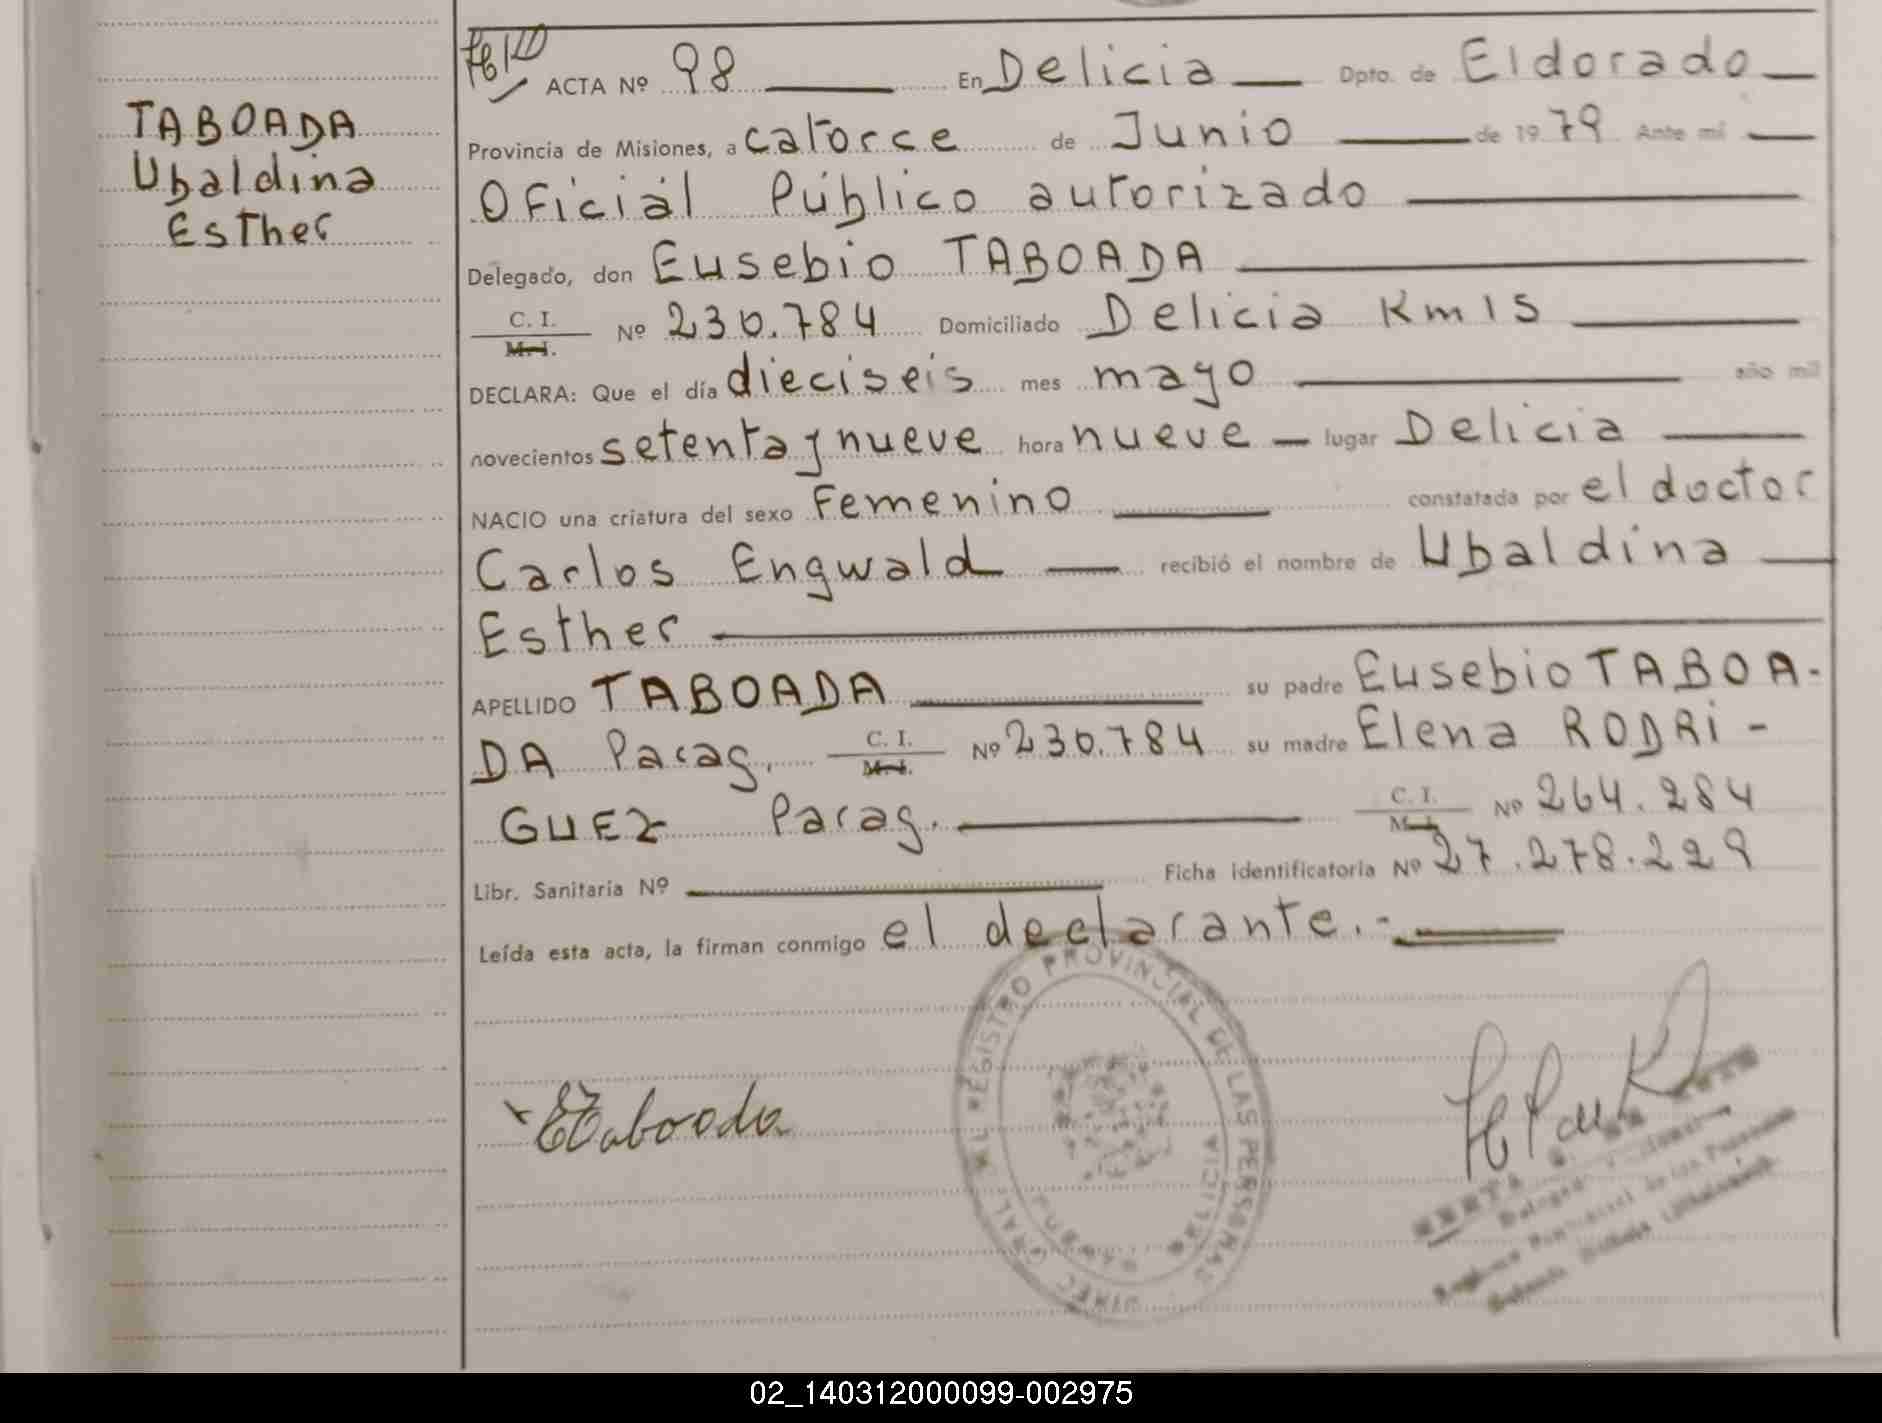 TABOADA
Ubaldina
Esther
ACTA Nº 98 En Delicia Dpto. de Eldorado
Provincia de Misiones, a catorce de Junio de 1979 Ante mí
Oficial Público autorizado
Delegado, don Eusebio TABOADA
C. I.
M. I.
Nº 230.784 Domiciliado Delicia Km 15
DECLARA: Que el día dieciseis mes mayo año mil
novecientos setenta y nueve hora nueve lugar Delicia
NACIO una criatura del sexo Femenino constatada por el doctor
Carlos Engwald recibió el nombre de Ubaldina
Esther
APELLIDO TABOADA su padre Eusebio TABOA-
DA Parag. C. I. M. I. Nº 230.784 su madre Elena RODRI-
GUEZ Parag. C. I. M. I. Nº 264.284
Libr. Sanitaria Nº Ficha identificatoria Nº 27.278.229
Leída esta acta, la firman conmigo el declarante.-
ETaboada
DIREC. GRAL. DEL REGISTRO PROVINCIAL DE LAS PERSONAS
DELICIA
02_140312000099-002975